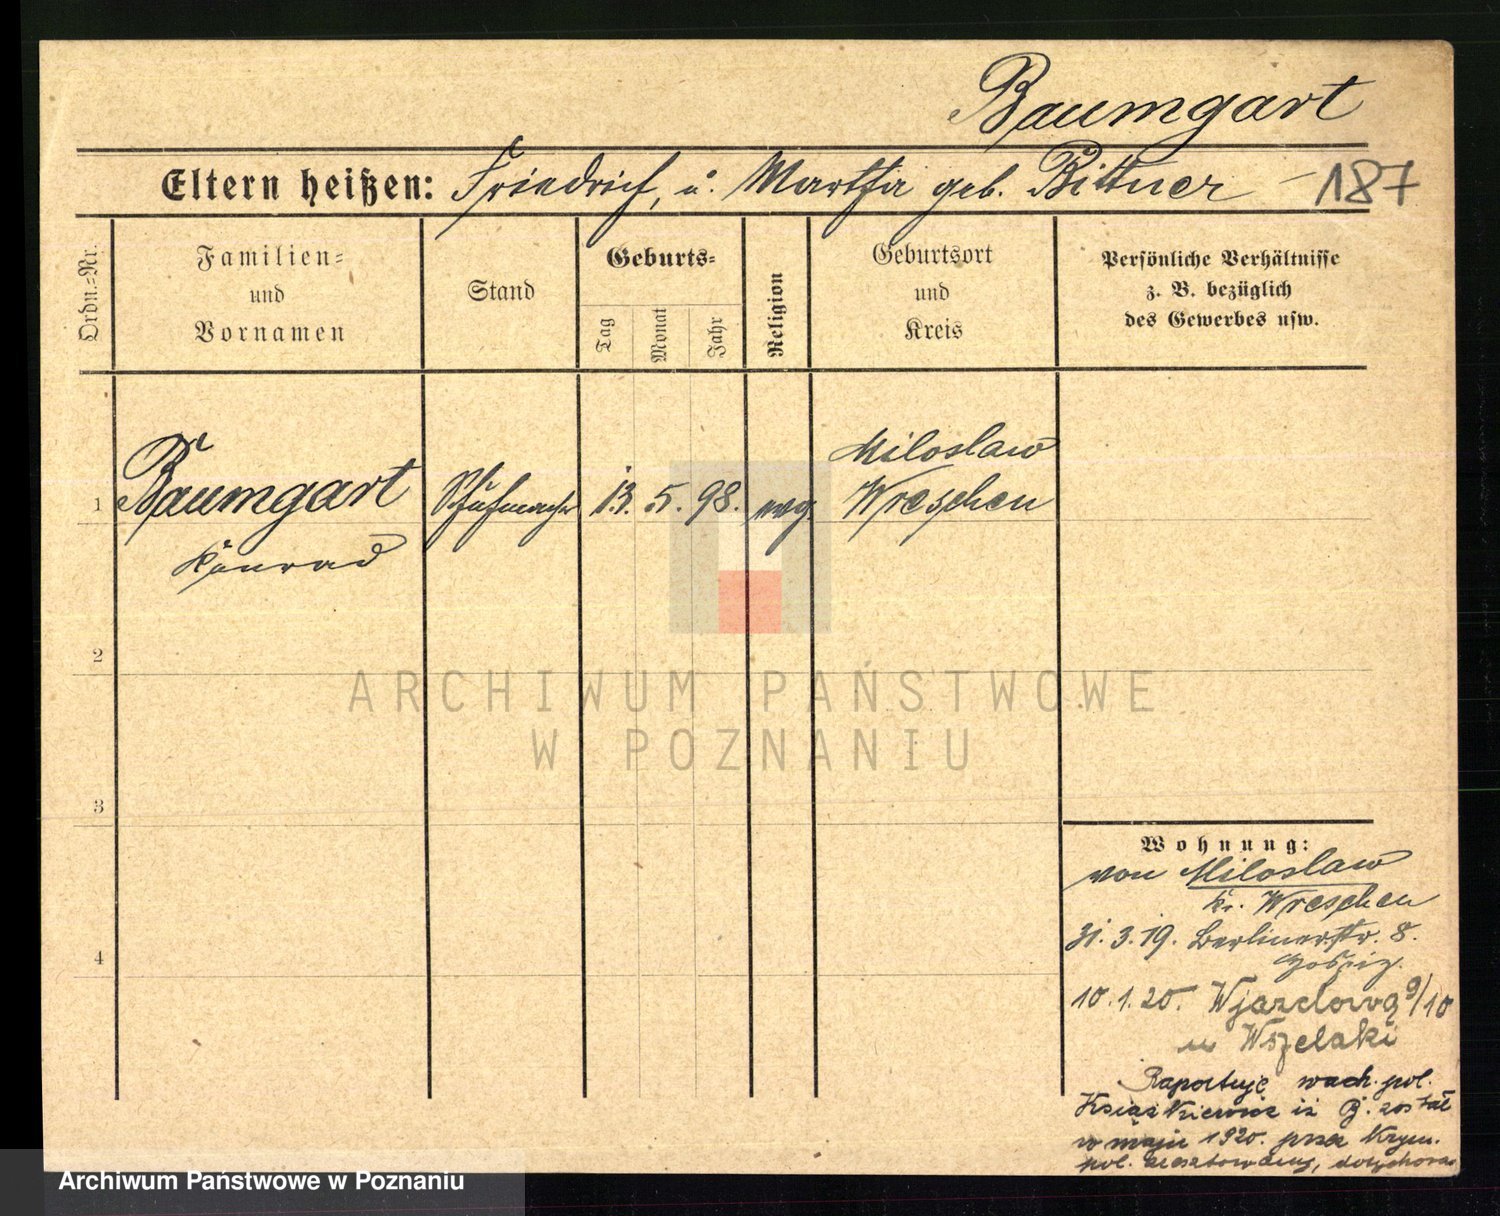 Baumgart
Eltern heißen: Friedrich, u. Martha geb. Bittner - 187
Ordn.-Nr.
Familien-
und
Vornamen
Stand
Geburts-
Tag
Monat
Jahr
Religion
Geburtsort
und
Kreis
Persönliche Verhältnisse
z. B. bezüglich
des Gewerbes usw.
1
Baumgart
Konrad
Schuhmacher
13. 5. 98.
evg.
Miloslaw
Wreschen
2
3
4
Wohnung:
von Miloslaw
Kr. Wreschen
31. 3. 19. Berlinerstr. 8.
Hospiz.
10. 1. 20. Wjazdowa 9/10
u Wszelaki
Raportuje wach. pol.
Książkiewicz iż B. został
w maju 1920. przez Krym.
pol. aresztowany, dotychczas
ARCHIWUM PAŃSTWOWE
W POZNANIU
Archiwum Państwowe w Poznaniu